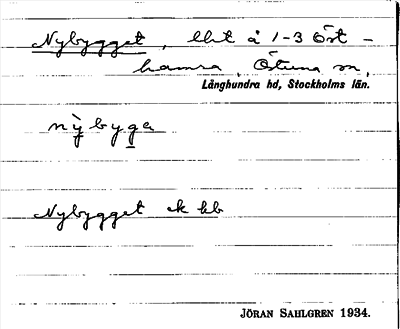 Nybygget, lht å 1-3 Öst-
hamra, Östuna sn,
Långhundra hd, Stockholms län.
nỳbyga
Nybygget ek bb
JÖRAN SAHLGREN 1934.